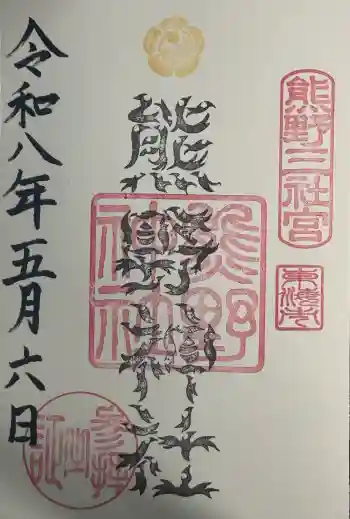 熊野三社宮
東海市
熊野神社
熊野神社
参拝之証
令和八年五月六日